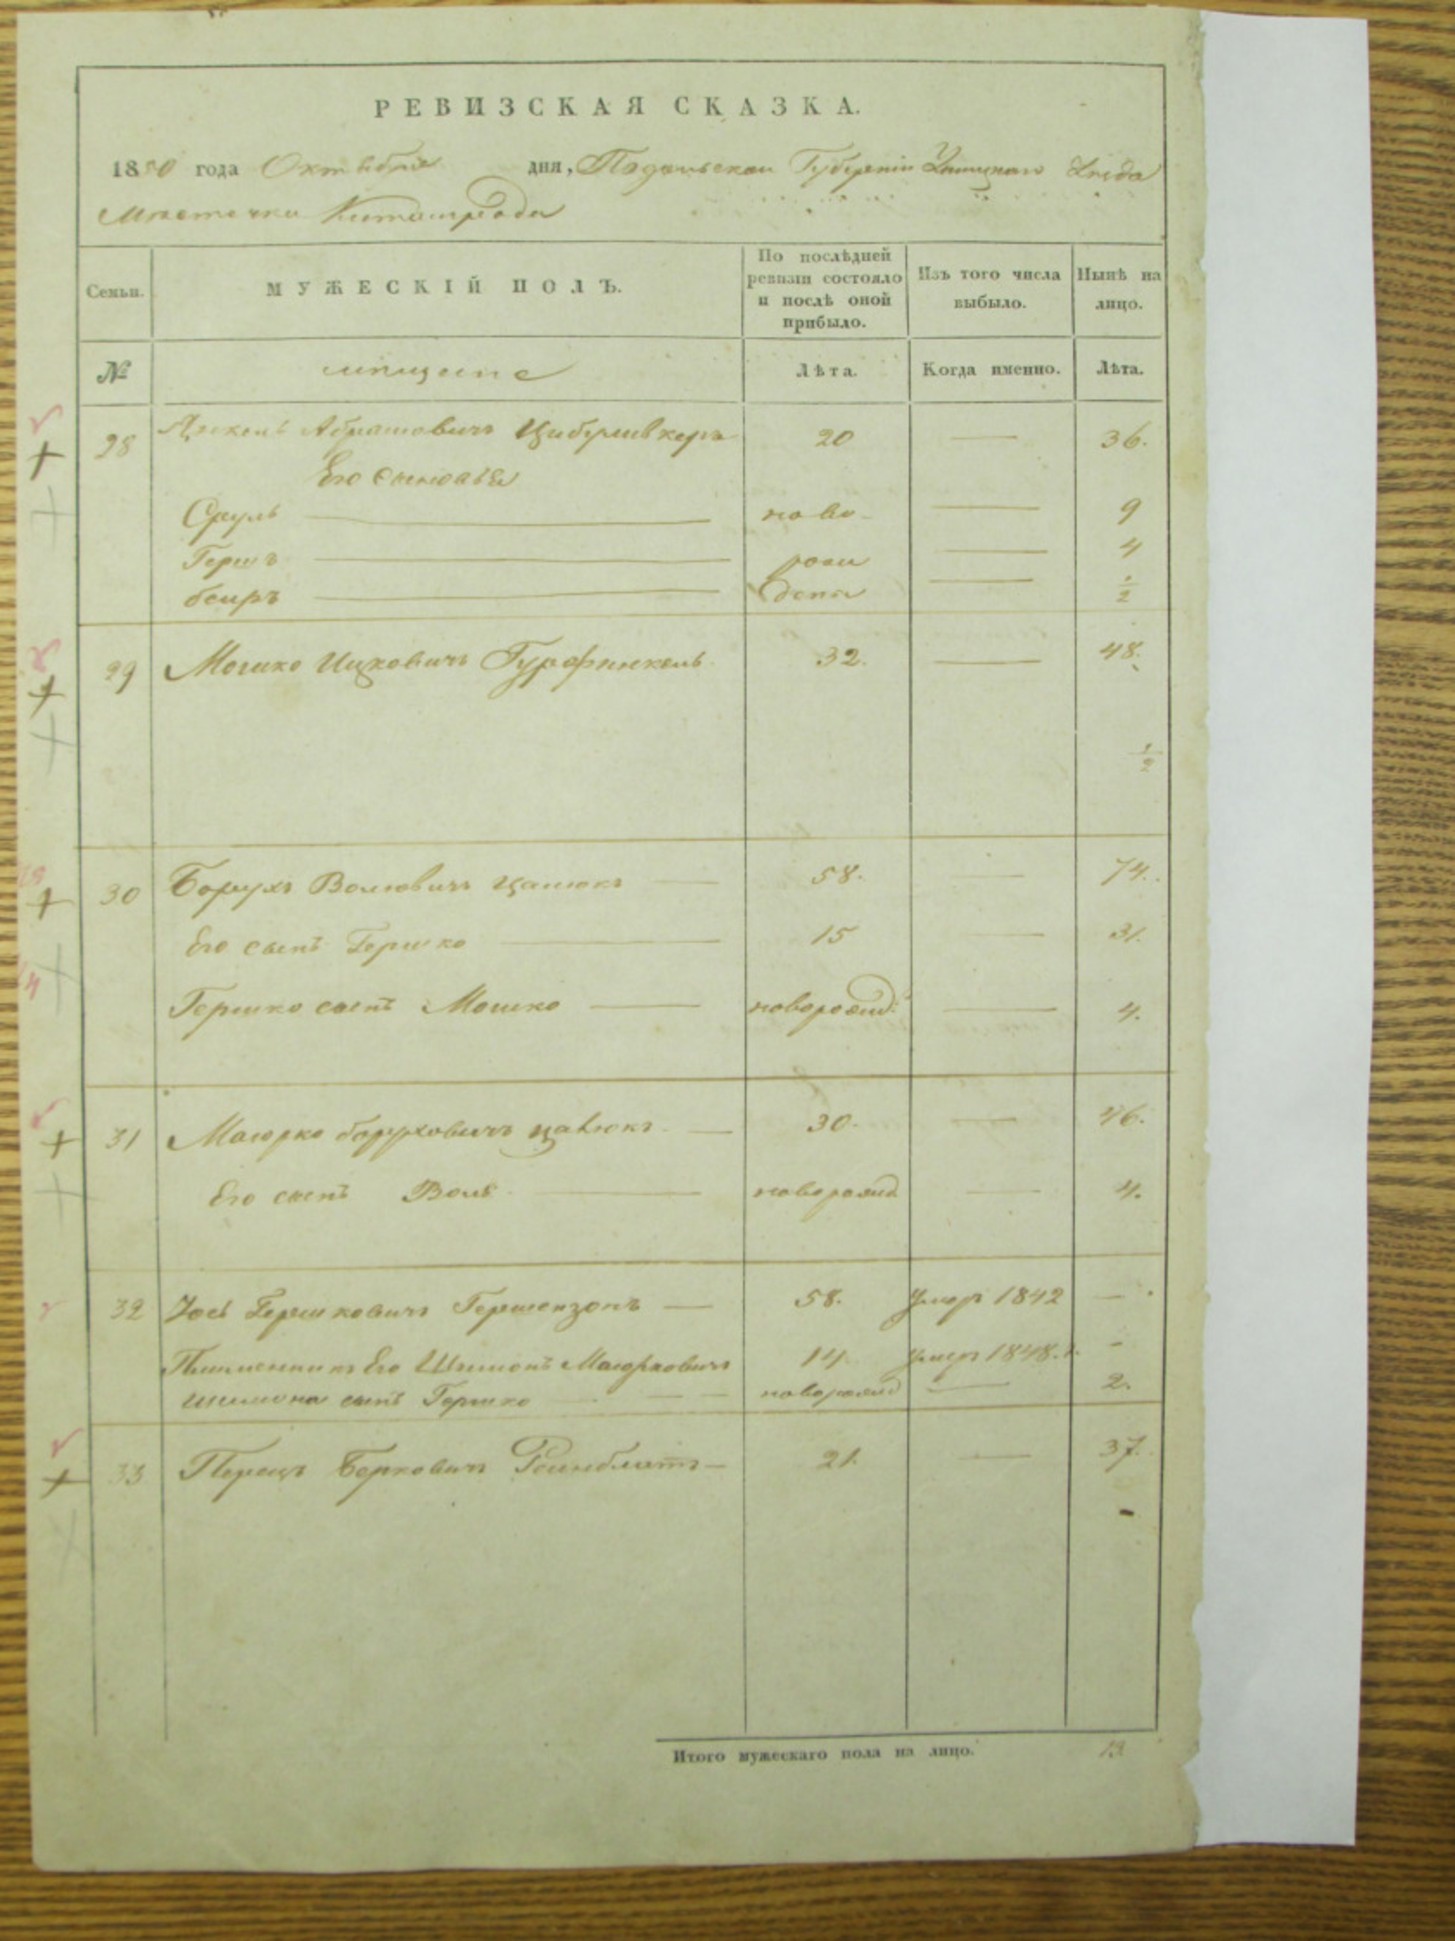 РЕВИЗСКАЯ СКАЗКА.
1850 года Октября дня, Подольской Губерніи Ушицкаго Уѣзда
Мѣстечка Китайгрода
Семьи. МУЖЕСКІЙ ПОЛЪ. По послѣдней ревизіи состояло и послѣ оной прибыло. Изъ того числа выбыло. Нынѣ на лицо.
№ мѣщане Лѣта. Когда именно. Лѣта.
28 Абрамовичъ 20 — 36.
Его сыновья
Сруль — ново- — 9
Гершъ — рож — 4
Беиръ — дены — 1/2
29 Мошко Ицковичъ Гурфинкель 32. — 48.
1/2
30 Борухъ Волковичъ Цацюкъ — 58. — 74.
Его сынъ Гершко — 15 — 31.
Гершко сынъ Мошко — новорожд: — 4.
31 Маюрко Боруховичъ Цацюкъ — 30. — 46.
Его сынъ — новорожд — 4.
32 Іось Гершковичъ Гершензонъ — 58. Умеръ 1842 —
Племянникъ Его Шлиомъ Маюрковичъ 14 умеръ 1848. г. —
сынъ Гершко — новорожд — 2.
33 Перецъ Берковичъ Роинблатъ — 21. — 37.
Итого мужескаго пола на лицо. 13